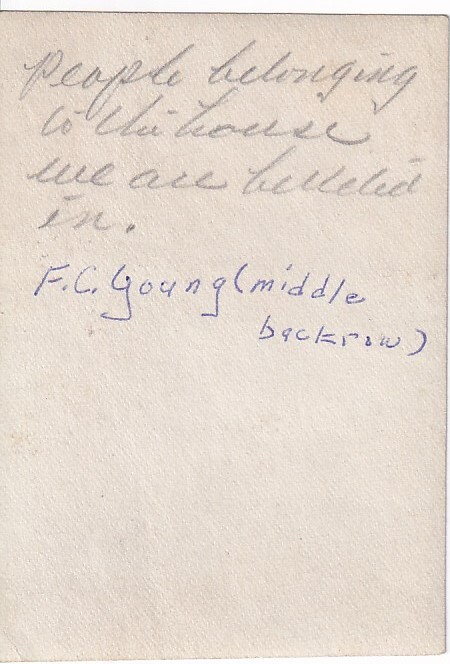 People belonging
to this house
we are billeted
in.
F.C. Young (middle
backrow)